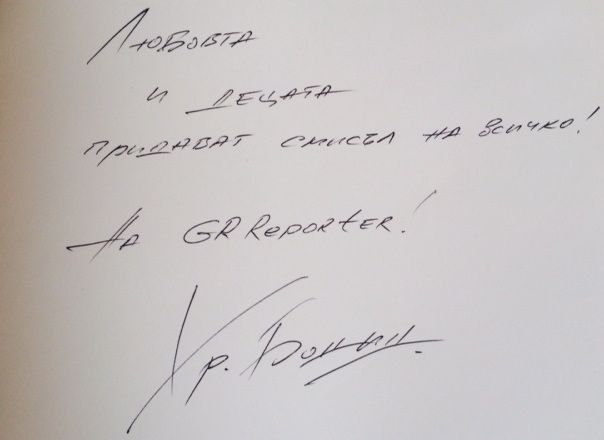 Любовта
и децата
придават смисъл на всичко!
На GRReporter!
Хр. Бонин